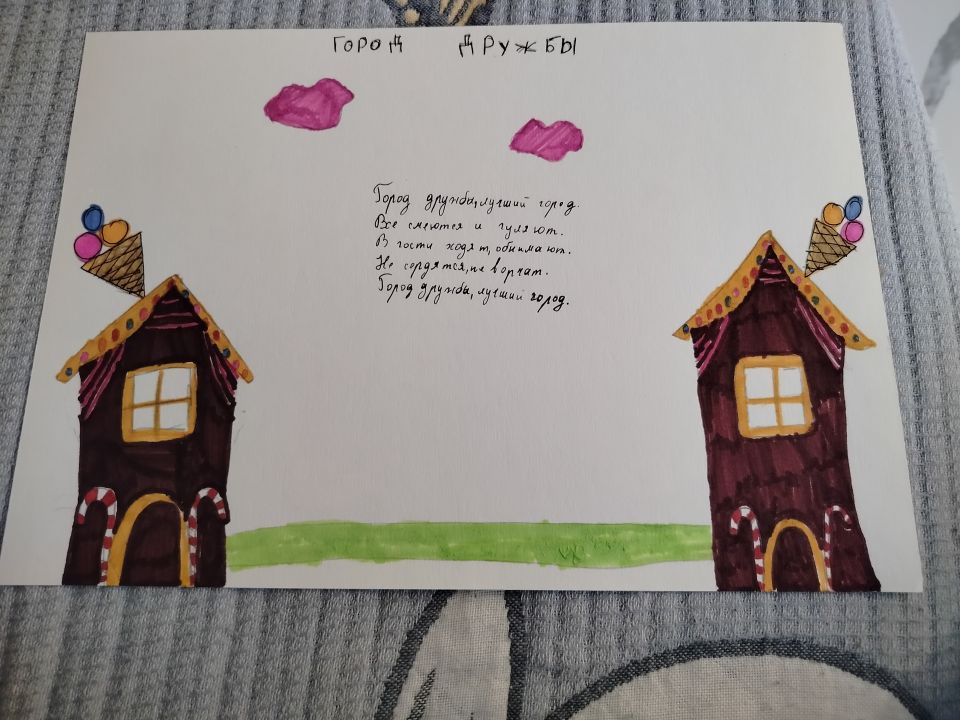 ГОРОД ДРУЖБЫ
Город дружбы, лучший город.
Все смеются и гуляют.
В гости ходят, обнимают.
Не сердятся, не ворчат.
Город дружбы, лучший город.